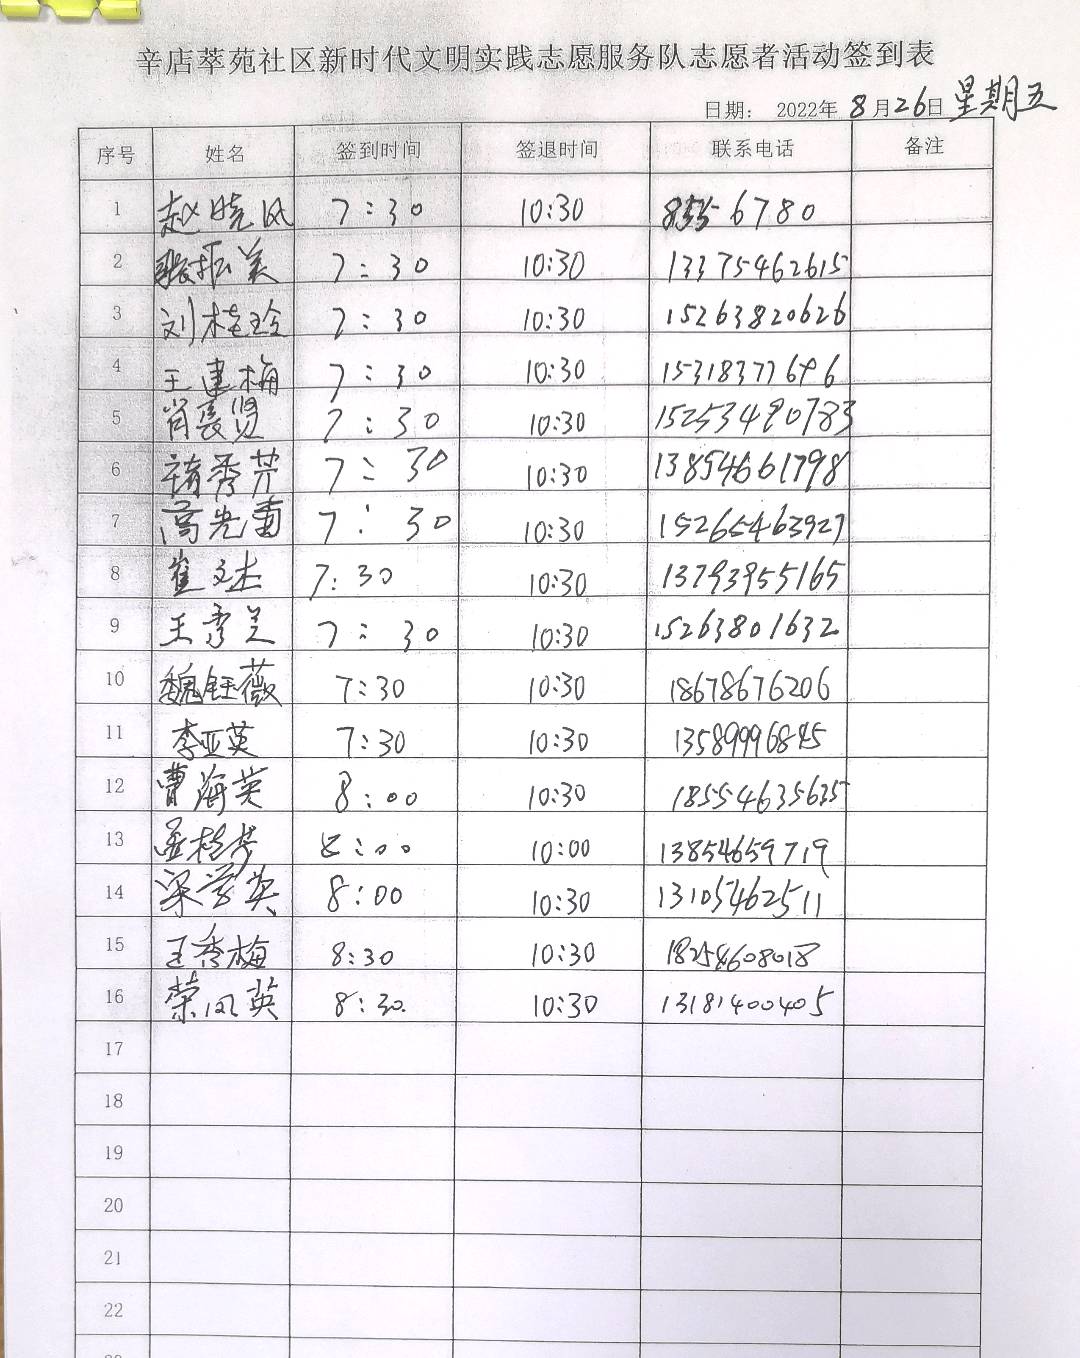 辛店萃苑社区新时代文明实践志愿服务队志愿者活动签到表
日期： 2022年 8月26日 星期五
序号 姓名 签到时间 签退时间 联系电话 备注
1 赵晓风 7:30 10:30 8556780
2 张振美 7:30 10:30 13375462615
3 刘桂玲 7:30 10:30 15263820626
4 王建梅 7:30 10:30 15318377696
5 肖长贤 7:30 10:30 15253490783
6 禇秀芹 7:30 10:30 13854661798
7 高光雷 7:30 10:30 15265463927
8 崔文杰 7:30 10:30 13793955165
9 王秀美 7:30 10:30 15263801632
10 魏钰薇 7:30 10:30 18678676206
11 李亚英 7:30 10:30 13589996845
12 曹海英 8:00 10:30 18554635635
13 8:00 10:00 13854659719
14 梁学英 8:00 10:30 13105462511
15 王秀梅 8:30 10:30 18254608018
16 荣凤英 8:30 10:30 13181400405
17
18
19
20
21
22